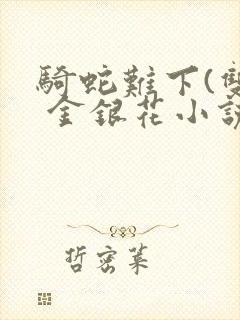 騎蛇難下(雙
金銀花小說
哲密某